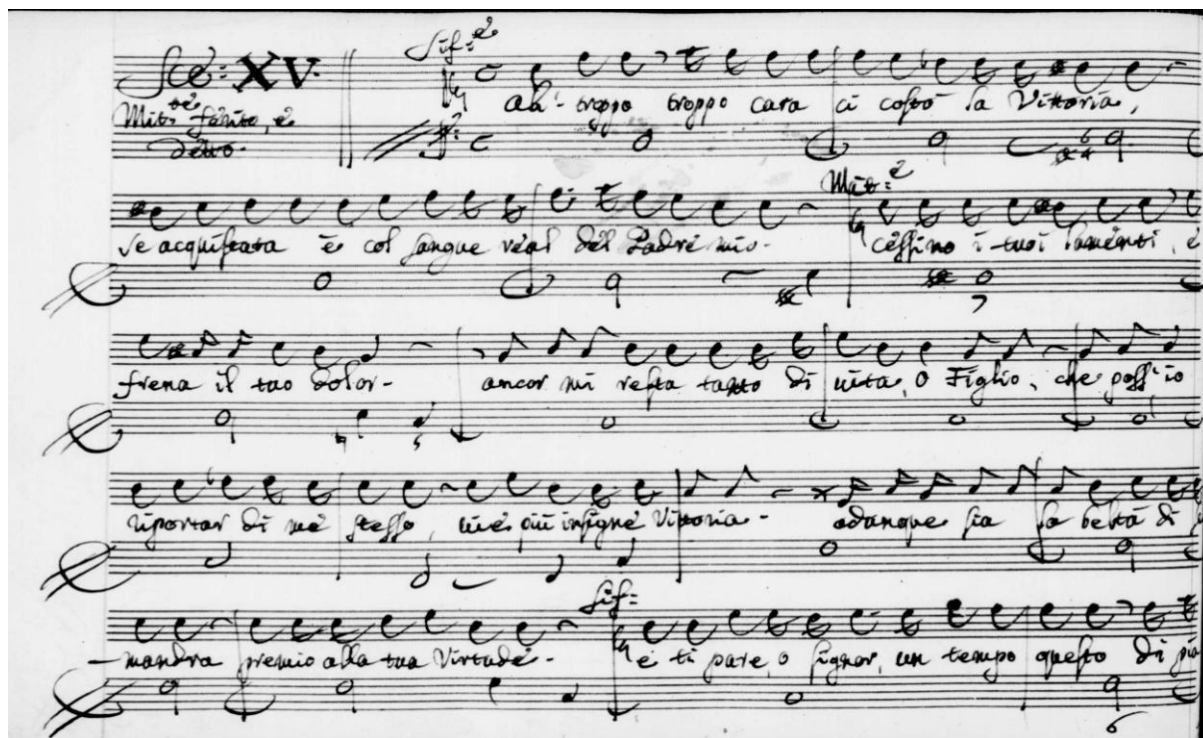 Sce: XV.
Mit:te ferito, e
detto.
Sif:e
Ah' troppo troppo cara ci costò la Vittoria,
Mit:e
se acquistata è col sangue real del Padre mio. cessino i tuoi lamenti, e
frena il tuo dolor. ancor mi resta tanto di vita, o Figlio, che poss'io
riportar di me stesso, vie più insigne Vittoria. adunque sia la beltà di
Sif:
mandra premio alla tua Virtude. e ti pare, o signor, un tempo questo di